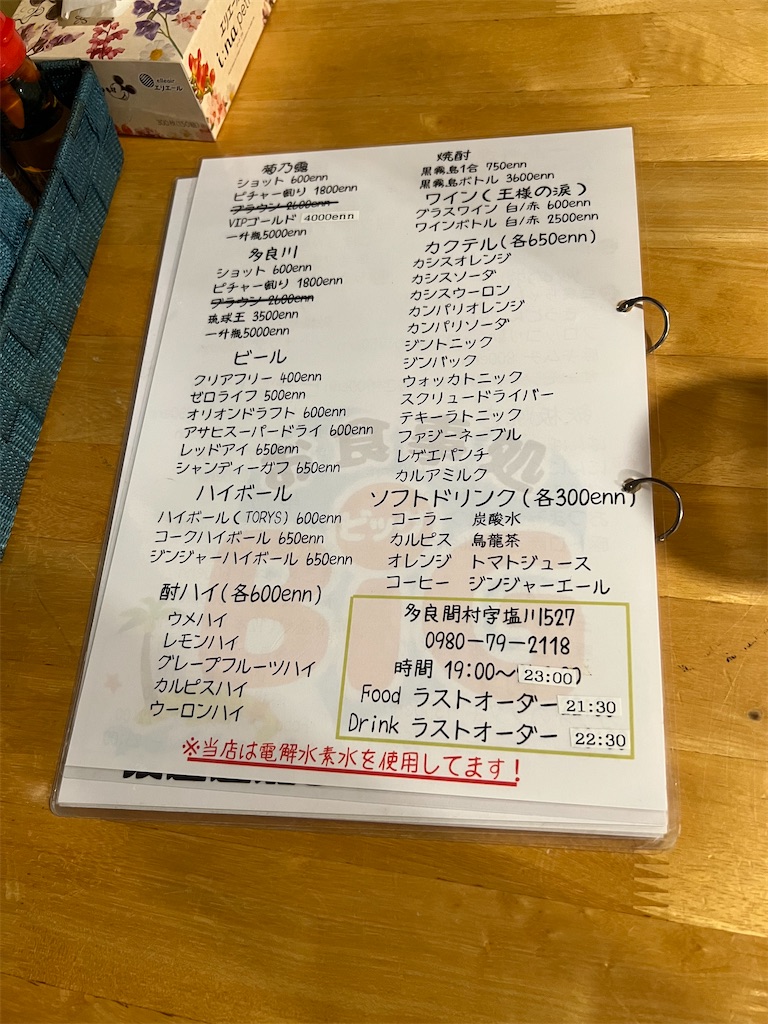 エリエール
i:na
elleair
エリエール
菊乃露
ショット 600enn
ピチャー(割り) 1800enn
ブラウン 2600enn
VIPゴールド 4000enn
一升瓶5000enn
多良川
ショット 600enn
ピチャー(割り) 1800enn
ブラウン 2600enn
琉球王 3500enn
一升瓶5000enn
ビール
クリアフリー 400enn
ゼロライフ 500enn
オリオンドラフト 600enn
アサヒスーパードライ 600enn
レッドアイ 650enn
シャンディーガフ 650enn
ハイボール
ハイボール(TORYS) 600enn
コークハイボール 650enn
ジンジャーハイボール 650enn
酎ハイ(各600enn)
ウメハイ
レモンハイ
グレープフルーツハイ
カルピスハイ
ウーロンハイ
焼酎
黒霧島1合 750enn
黒霧島ボトル 3600enn
ワイン(王様の涙)
グラスワイン 白/赤 600enn
ワインボトル 白/赤 2500enn
カクテル(各650enn)
カシスオレンジ
カシスソーダ
カシスウーロン
カンパリオレンジ
カンパリソーダ
ジントニック
ジンバック
ウォッカトニック
スクリュードライバー
テキーラトニック
ファジーネーブル
レゲエパンチ
カルアミルク
ソフトドリンク(各300enn)
コーラー 炭酸水
カルピス 烏龍茶
オレンジ トマトジュース
コーヒー ジンジャーエール
多良間村字塩川527
0980-79-2118
時間 19:00～23:00
Food ラストオーダー 21:30
Drink ラストオーダー 22:30
※当店は電解水素水を使用してます!